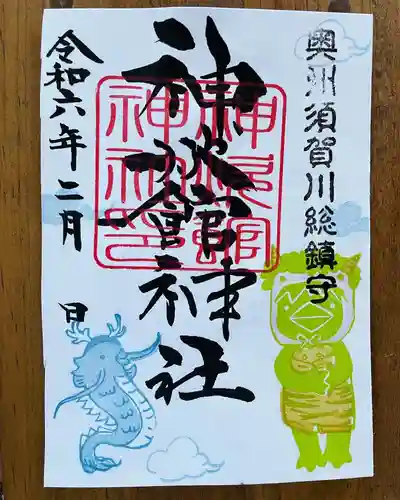 奥州須賀川総鎮守
神炊館神社
神炊館
神社印
令和六年二月 日